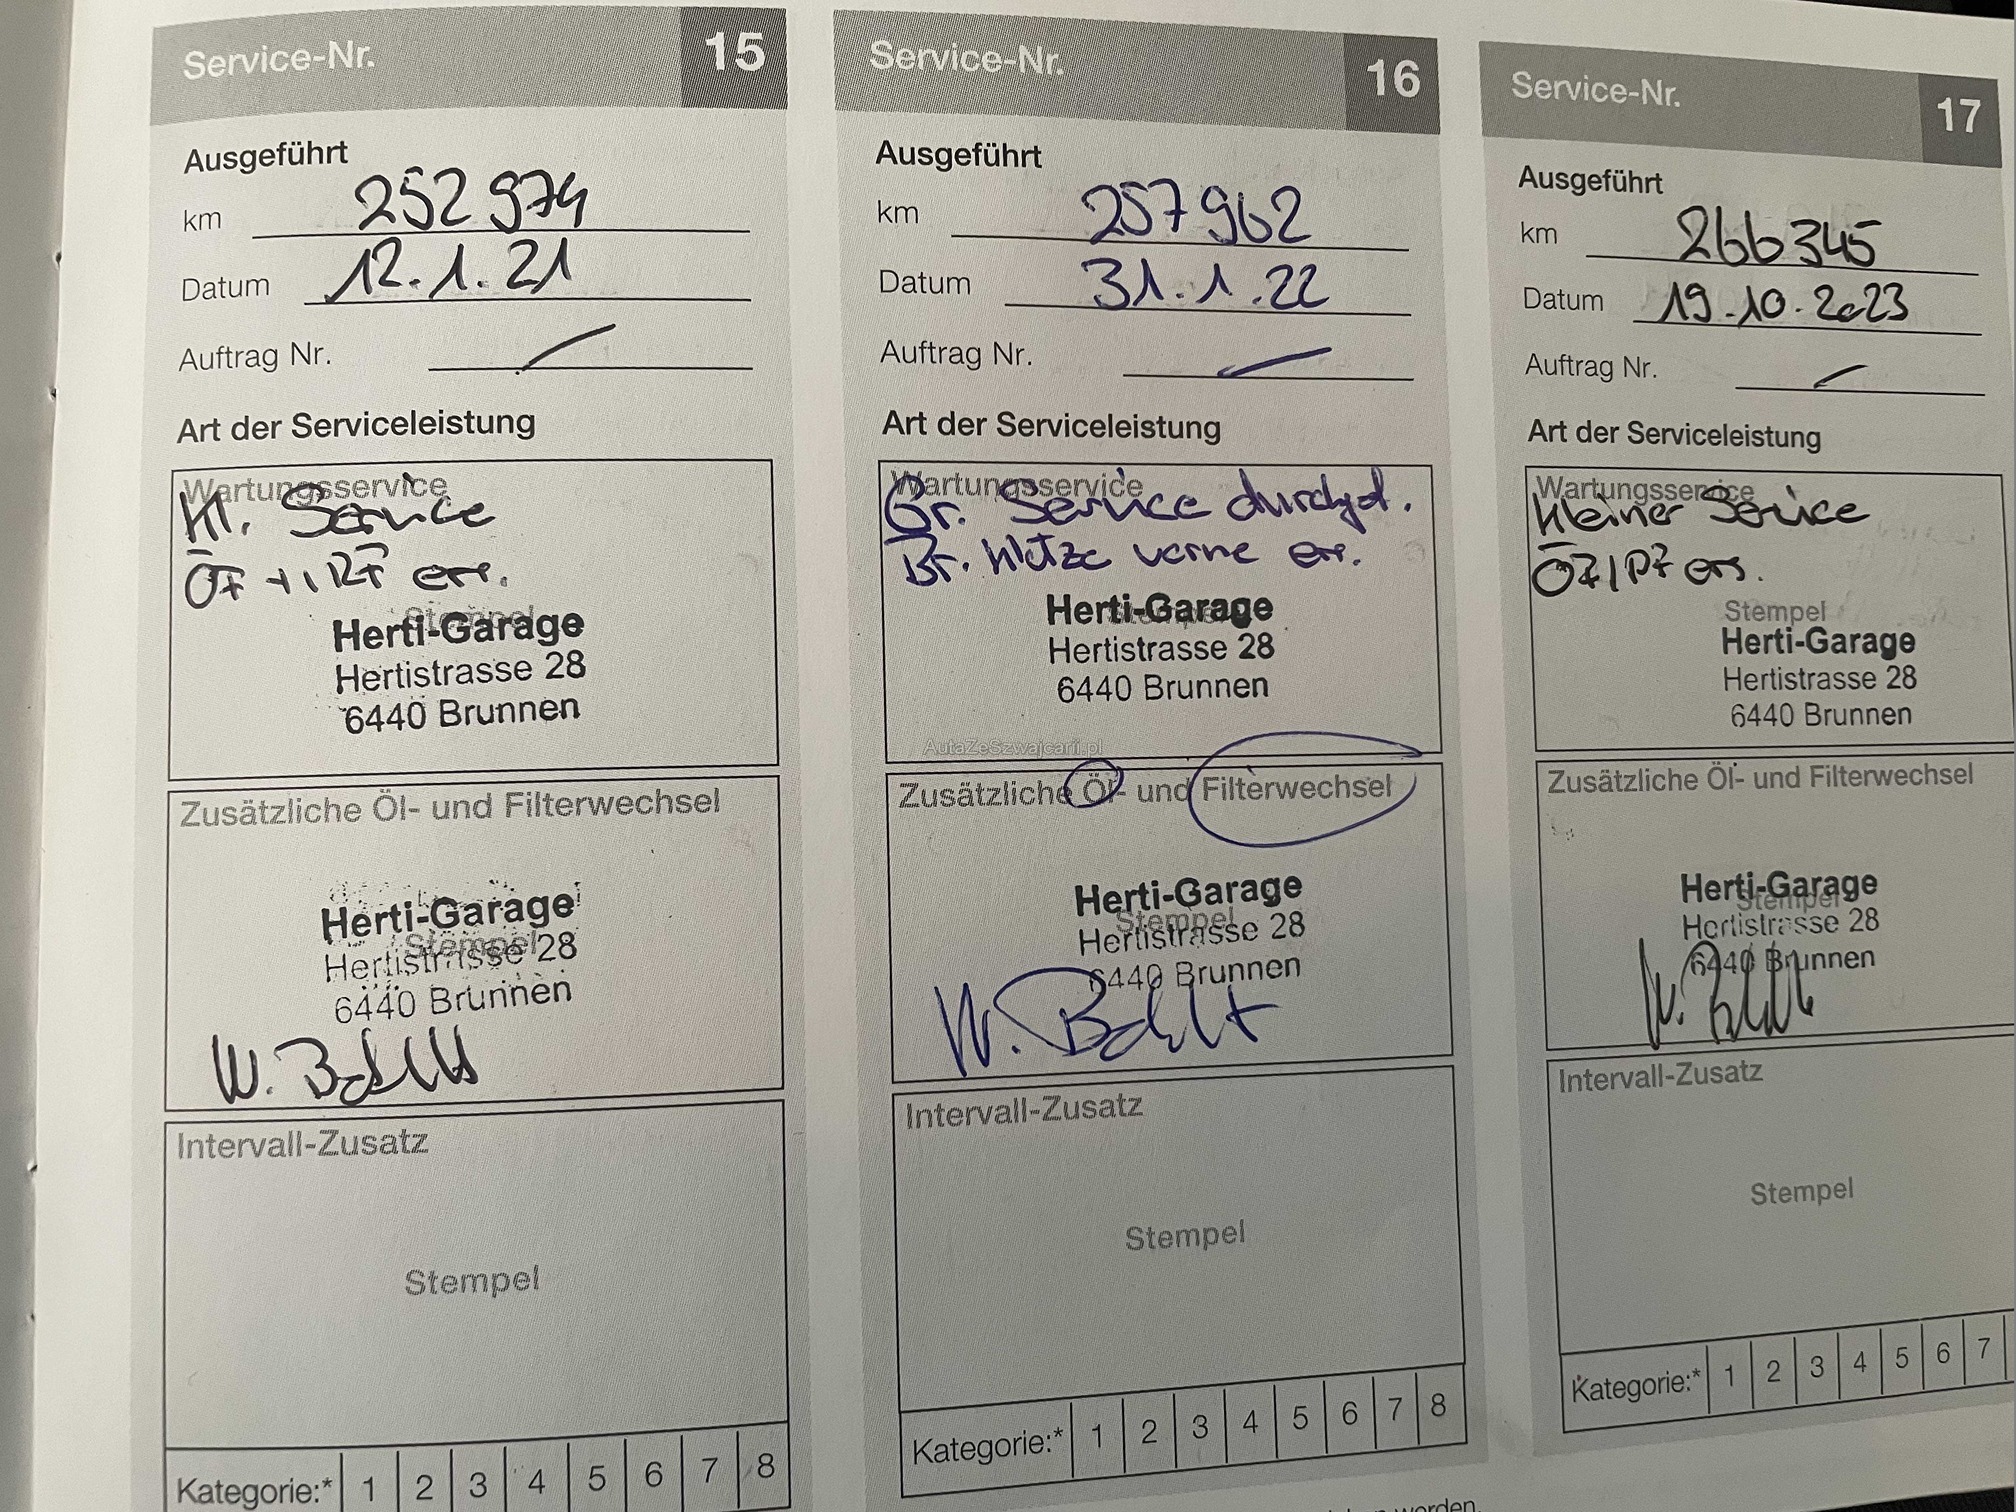 Service-Nr. 15
Ausgeführt
km 252 974
Datum 12.1.21
Auftrag Nr. /
Art der Serviceleistung
Wartungsservice
Kl. Service
ÖF + IRF ers.
Stempel
Herti-Garage
Hertistrasse 28
6440 Brunnen
Zusätzliche Öl- und Filterwechsel
Herti-Garage
Stempel
Hertistrasse 28
6440 Brunnen
W.
Intervall-Zusatz
Stempel
Kategorie:* 1 2 3 4 5 6 7 8
Service-Nr. 16
Ausgeführt
km 257 962
Datum 31.1.22
Auftrag Nr. /
Art der Serviceleistung
Wartungsservice
Gr. Service durchgef.
Br. Klötze vorne ers.
Stempel
Herti-Garage
Hertistrasse 28
6440 Brunnen
AutaZeSzwajcarii.pl
Zusätzliche Öl- und Filterwechsel
Herti-Garage
Stempel
Hertistrasse 28
6440 Brunnen
W.
Intervall-Zusatz
Stempel
Kategorie:* 1 2 3 4 5 6 7 8
Service-Nr. 17
Ausgeführt
km 266 345
Datum 19.10.2023
Auftrag Nr. /
Art der Serviceleistung
Wartungsservice
Kleiner Service
ÖF/PF ers.
Stempel
Herti-Garage
Hertistrasse 28
6440 Brunnen
Zusätzliche Öl- und Filterwechsel
Herti-Garage
Stempel
Hertistrasse 28
6440 Brunnen
W.
Intervall-Zusatz
Stempel
Kategorie:* 1 2 3 4 5 6 7
werden.